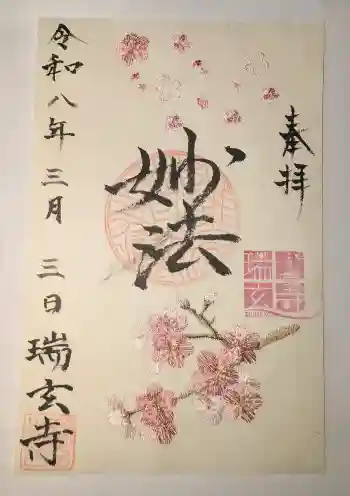 奉拝
妙法
令和八年三月三日瑞玄寺
瑞玄